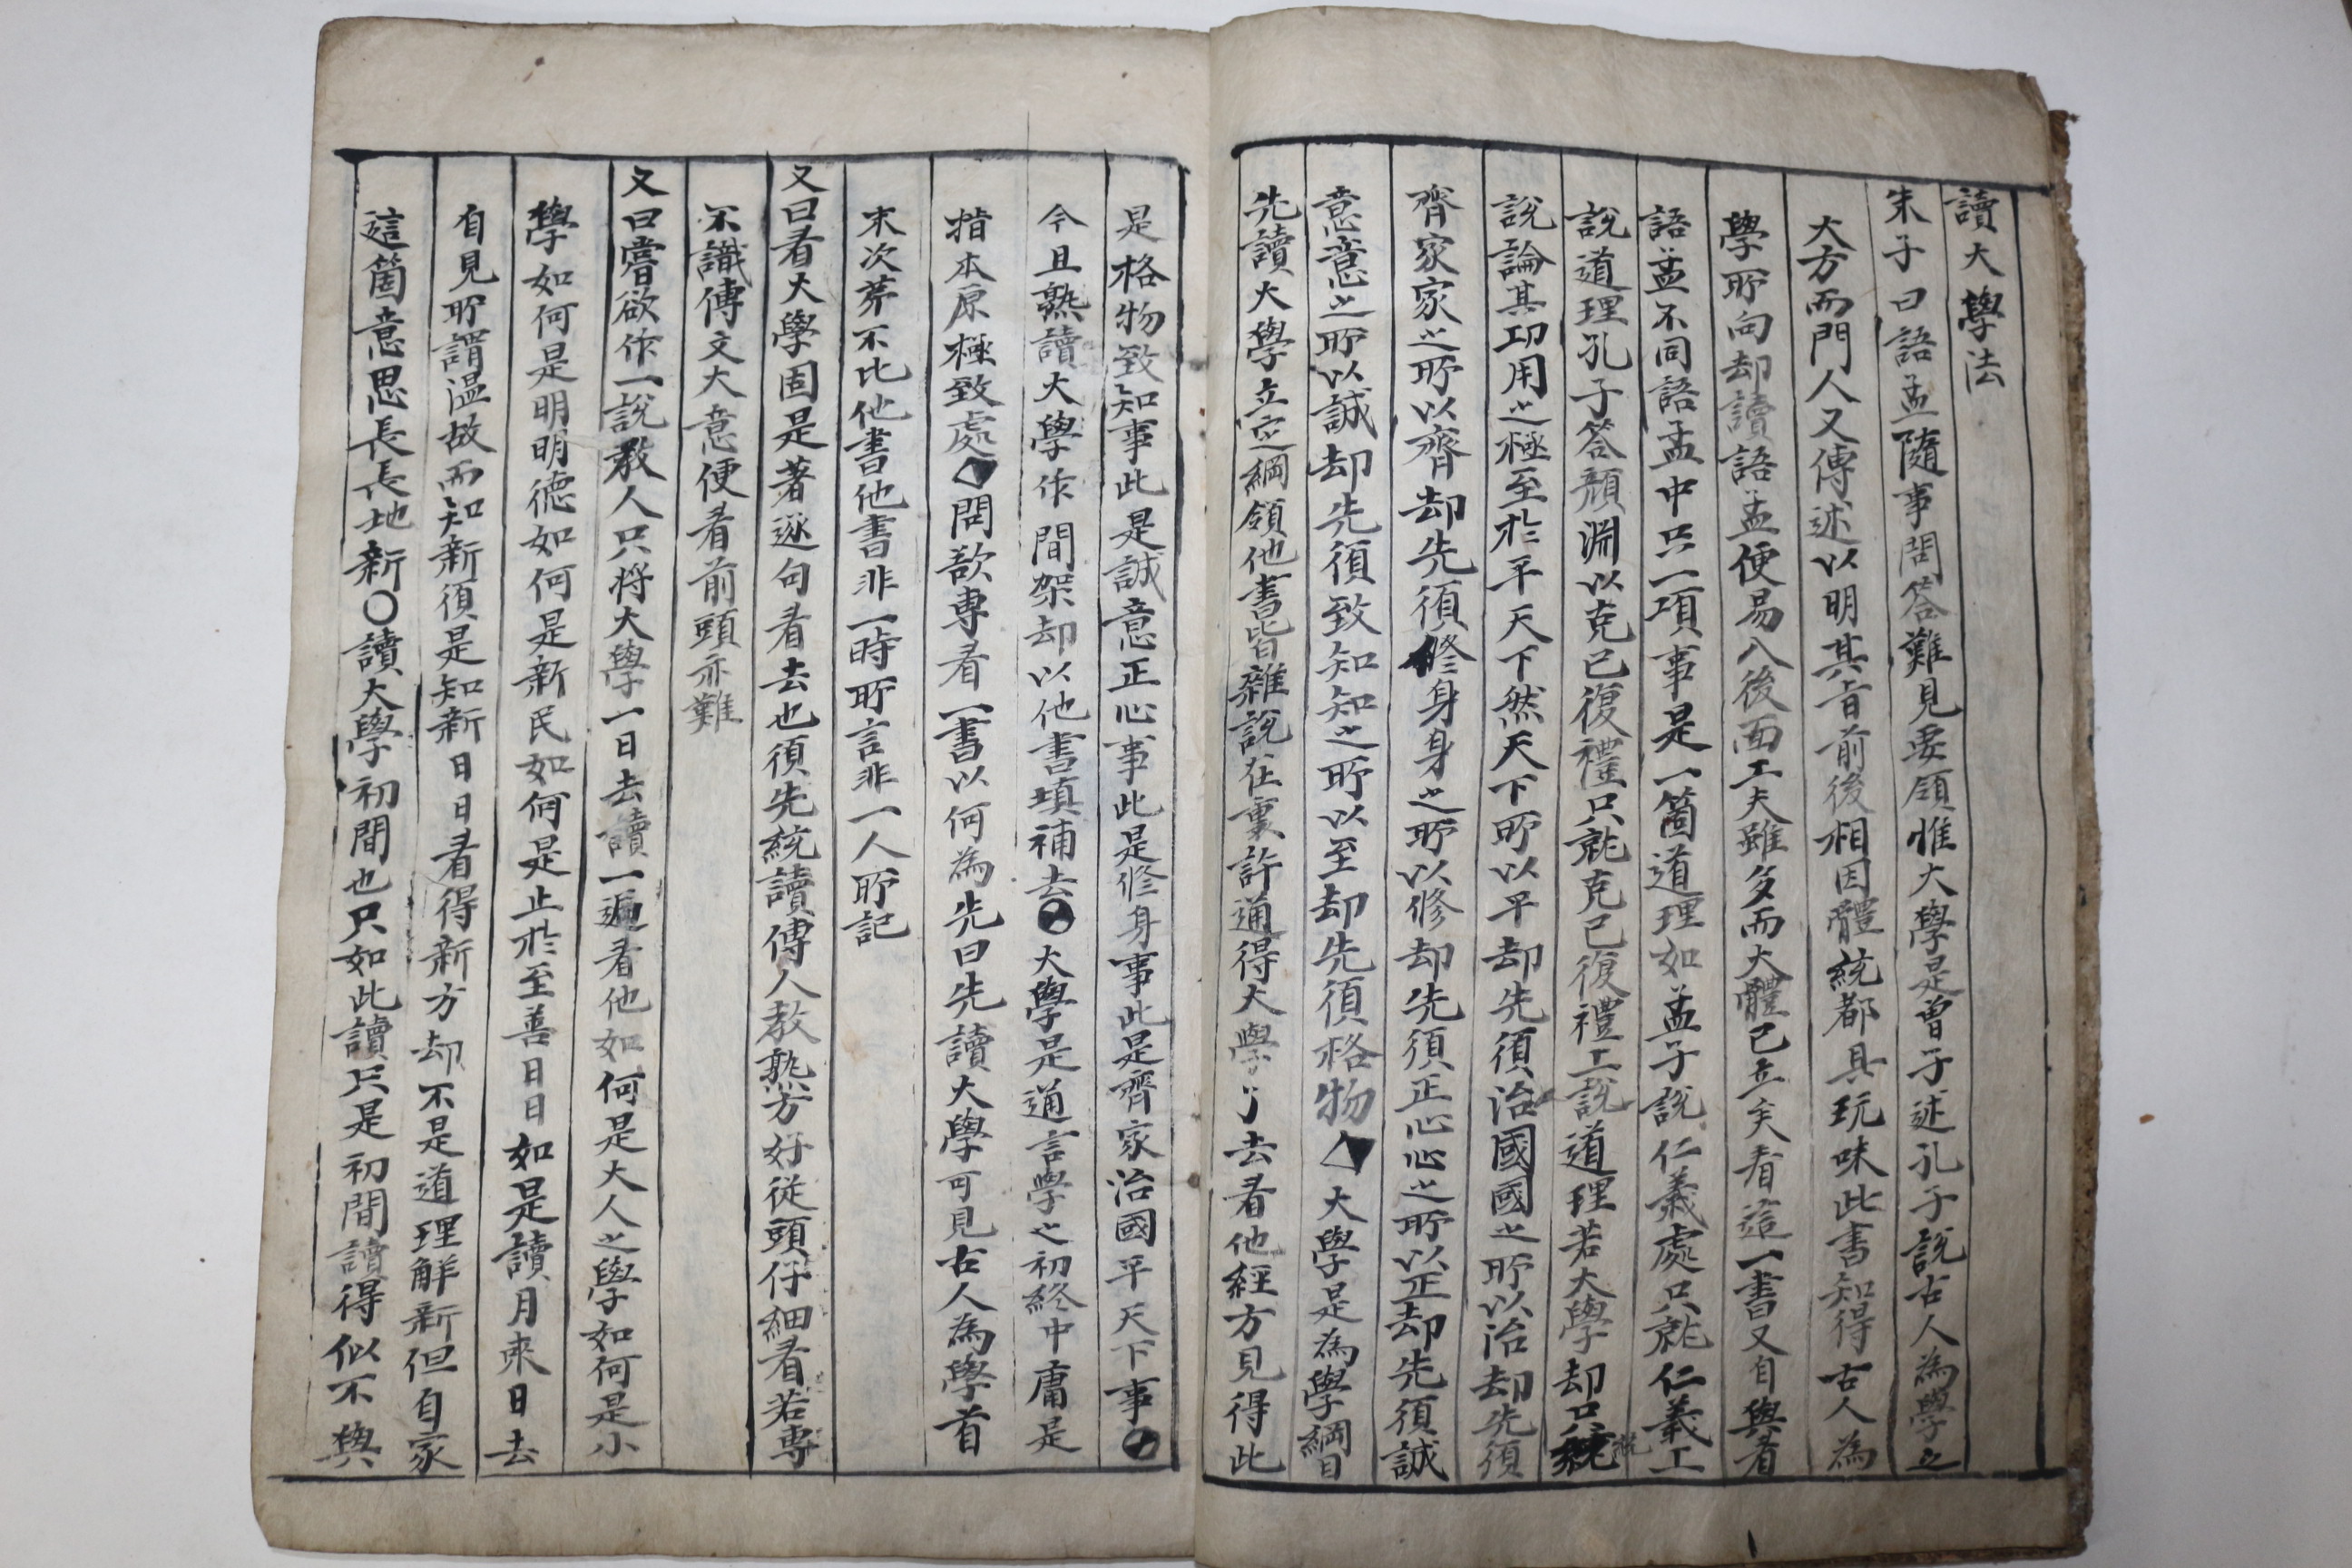 讀大學法
朱子曰語孟隨事問答難見要領惟大學是曽子述孔子說古人為學之
大方而門人又傳述以明其旨前後相因體統都具玩味此書知得古人為
學所向却讀語孟便易入後面工夫雖多而大體已立矣看這一書又自與看
語孟不同語孟中只一項事是一箇道理如孟子說仁義處只就仁義上
說道理孔子答顏淵以克己復禮只就克己復禮上說道理若大學却只統說
說論其功用之極至於平天下然天下所以平却先須治國國之所以治却先須
齊家家之所以齊却先須修身身之所以修却先須正心心之所以正却先須誠
意意之所以誠却先須致知知之所以至却先須格物 大學是為學綱目
先讀大學立定綱領他書皆雜說在裏許通得大學了去看他經方見得此
是格物致知事此是誠意正心事此是修身事此是齊家治國平天下事
今且熟讀大學作間架却以他書填補去 大學是通言學之初終中庸是
指本原極致處 問欲專看一書以何為先曰先讀大學可見古人為學首
末次苐不比他書他書非一時所言非一人所記
又曰看大學固是著逐句看去也須先統讀傳人教熟方好從頭仔細看若專
不識傳文大意便看前頭亦難
又曰嘗欲作一說教人只将大學一日去讀一遍看他如何是大人之學如何是小
學如何是明明德如何是新民如何是止於至善日日如是讀月來日去
自見所謂温故而知新須是知新日日看得新方却不是道理解新但自家
這箇意思長長地新○讀大學初間也只如此讀只是初間讀得似不與